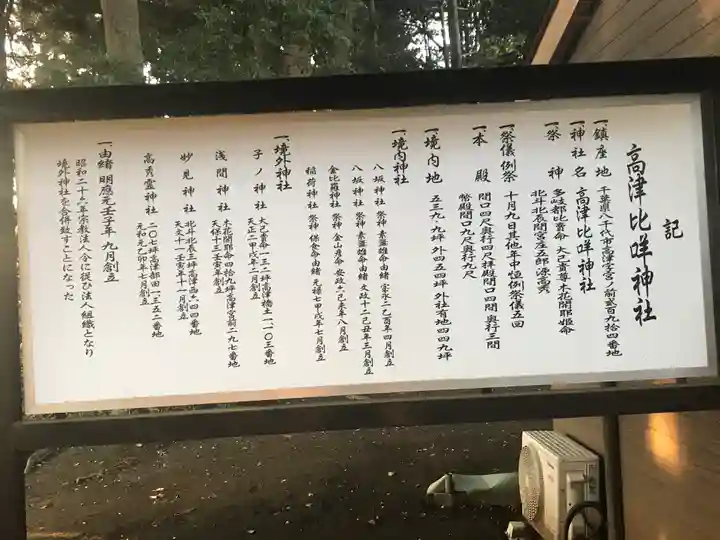 記
高津比咩神社
一、鎮座地 千葉県八千代市高津字宮ノ前弐百九拾四番地
一、神社名 高津比咩神社
一、祭神 多岐都比賣命 大己貴尊 木花開耶姫命
北斗北辰間宮庄五郎 源高秀
一、祭儀例祭 十月九日其他年中恒例祭儀五回
一、本殿 間口四尺奥行四尺拝殿間口四間 奥行三間
幣殿間口九尺奥行九尺
一、境内地 五三九、九坪 外四五四坪 外社有地四四九坪
一、境内神社
八坂神社 祭神 素盞雄命由緒 宝永二乙酉年四月創立
八坂神社 祭神 素盞雄命由緒 文政十二己丑年三月創立
金比羅神社 祭神 金山彦命 安政六己未年八月創立
稲荷神社 祭神 保食命由緒 元禄七甲戌年七月創立
一、境外神社
子ノ神社 大己貴命一三二坪高津橋土一一〇三番地
天正二甲戌年二月創立
浅間神社 木花開耶命四拾九坪高津宮前二九七番地
天保十三壬寅年創立
妙見神社 北斗北辰三坪高津西六四四番地
天文十一壬寅年十一月創立
高秀霊神社 二〇七坪高津都田一三五二番地
元和元乙卯年七月創立
一、由緒 明應元壬子年 九月創立
昭和二十六年宗教法人令に従ひ法人組織となり
境外神社を合併致すことになった